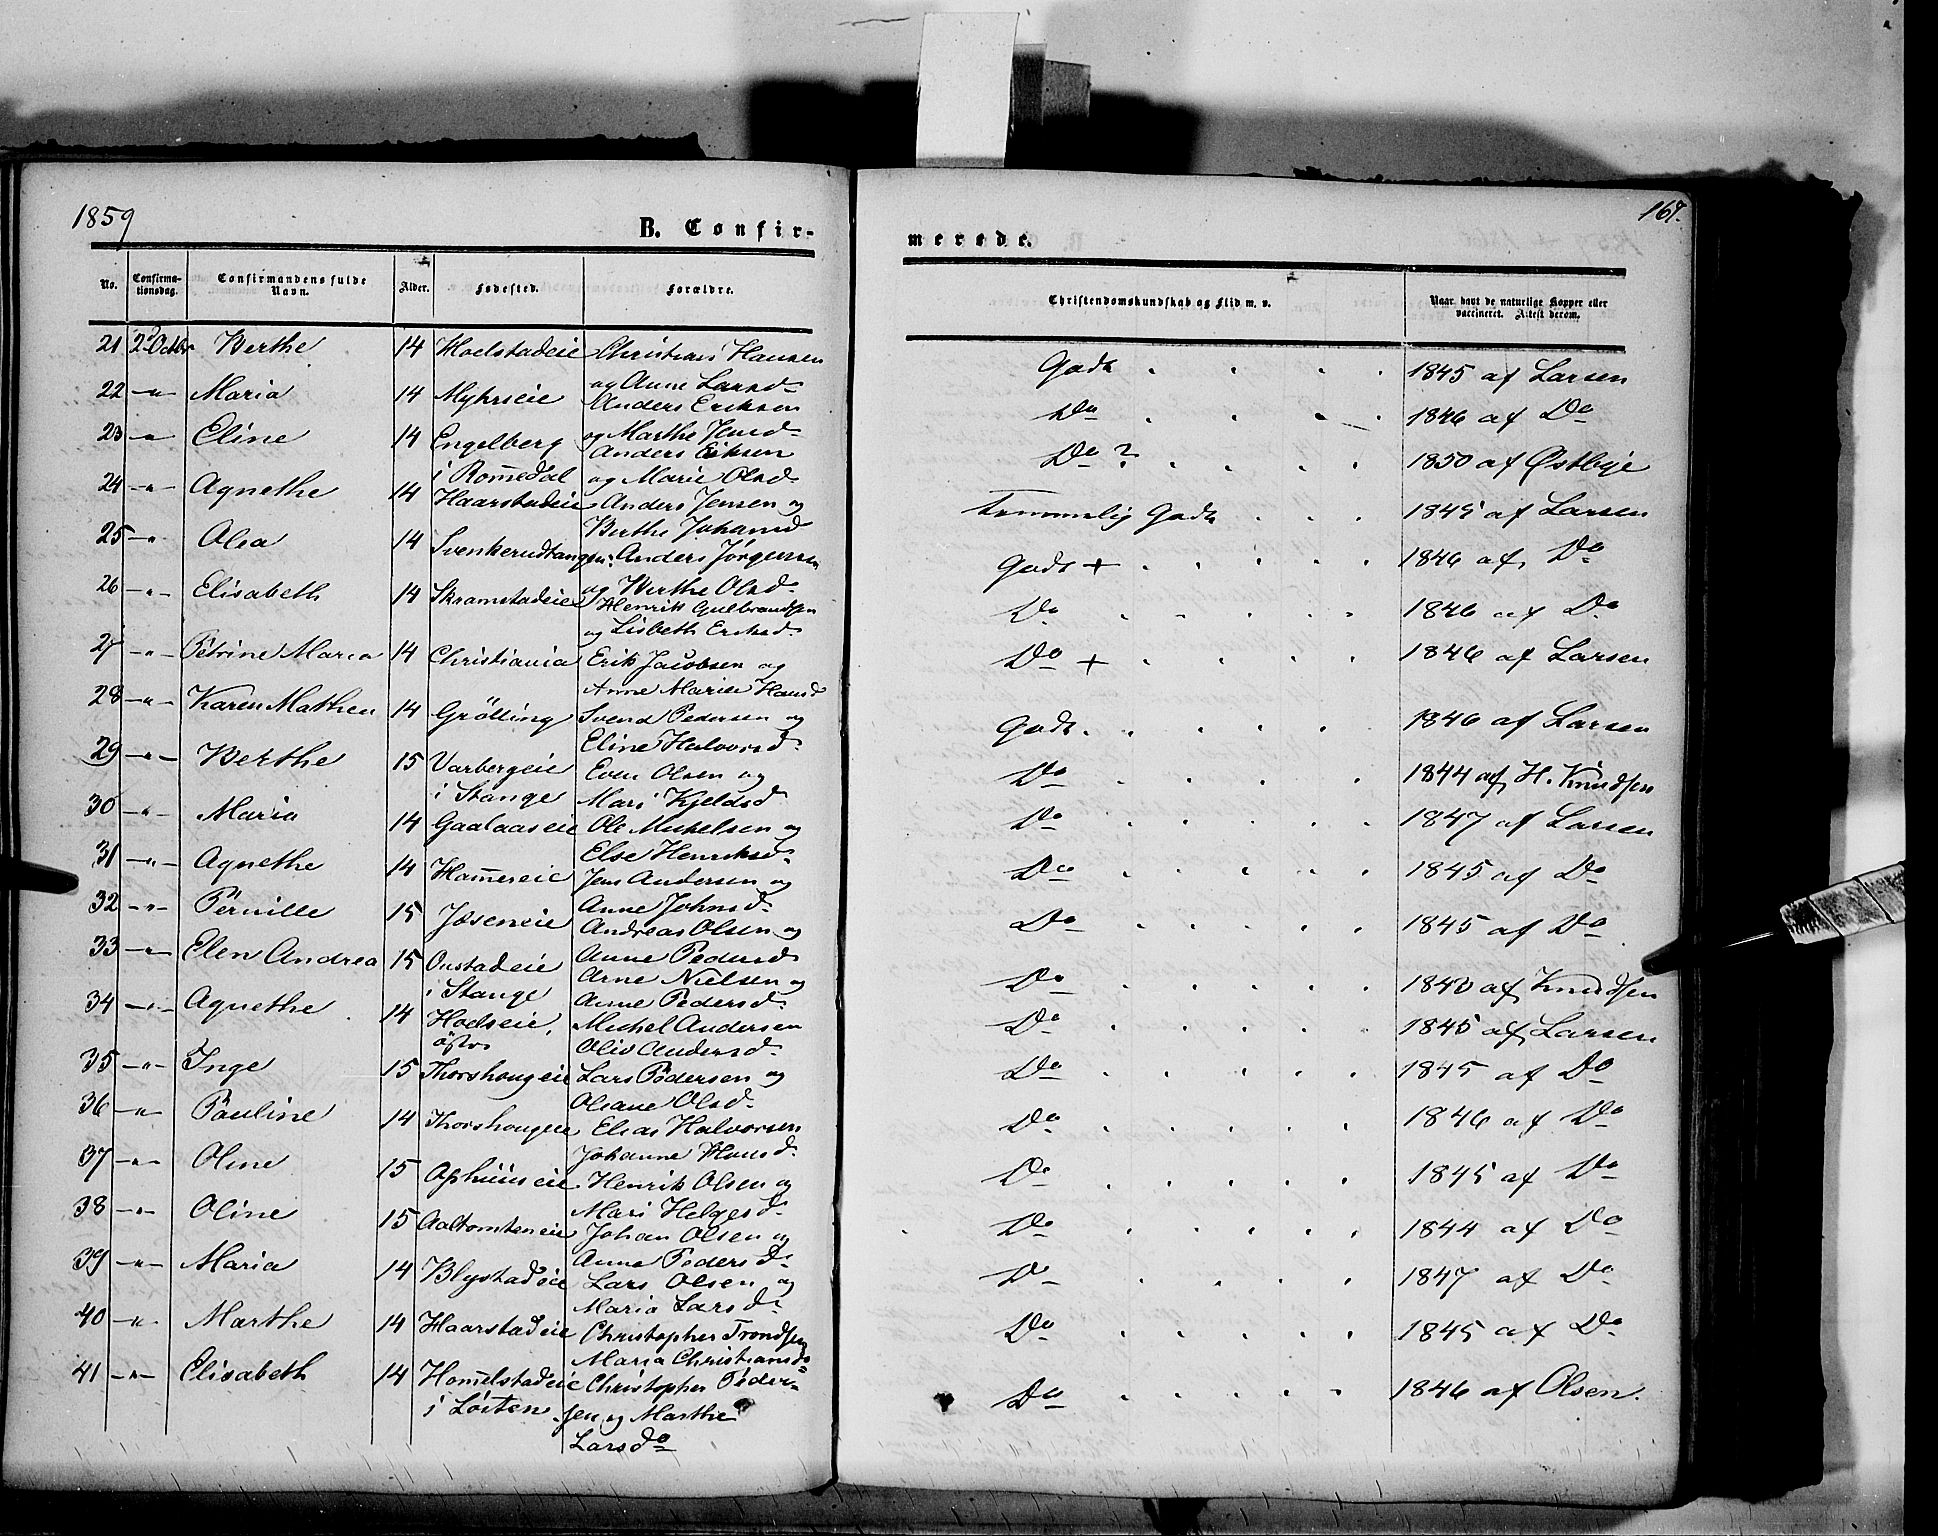 1859
B. Confir-
merede.
167.
No. Confirma-tionsdag. Confirmandens fulde Navn. Alder. Fødested. Forældre. Christendomskundskab og Flid m. v. Naar havt de naturlige Kopper eller vaccineret. Attest derom.
21 2 Octbr Berthe 14 Hoelstadeie Christian Hansen Godt 1845 af Larsen
og Anne Larsd.
22 -"- Maria 14 Myhrseie Anders Eriksen Do 1846 af Do
og Marthe Jensd.
23 -"- Eline 14 Engelberg Anders Eriksen Do ? 1850 af Østbye
i Romedal og Marie Olsd
24 -"- Agnethe 14 Haarstadeie Anders Jensen og Temmelig Godt 1845 af Larsen
Berthe Johansd
25 -"- Olea 14 Svenkerudtangen Anders Jørgensen Godt + 1846 af Do
og Berthe Olsd.
26 -"- Elisabeth 14 Skramstadeie Henrik Gulbrandsen Do 1846 af Do
og Lisbeth Eriksd.
27 -"- Petrine Maria 14 Christiania Erik Jacobsen og Do + 1846 af Larsen
Anne Marie Hansd
28 -"- Karen Mathea 14 Grötting Svend Pedersen og Godt. 1846 af Larsen
Eline Halvorsd.
29 -"- Berthe 15 Varbergeie Even Olsen og Do 1844 af H. Knudsen
i Stange Mari Kjeldsd.
30 -"- Maria 14 Gaalaaseie Ole Mickelsen og Do 1847 af Larsen
Else Henriksd.
31 -"- Agnethe 14 Hammereie Jens Andersen og Do 1845 af Do
Anne Johnsd.
32 -"- Pernille 15 Jøseneie Andreas Olsen og Do 1845 af Do
Anne Pedersd
33 -"- Elen Andrea 15 Oustadeie Arne Nielsen og Do 1843 af Knudsen
i Stange Anne Pedersd.
34 -"- Agnethe 14 Hoelseie, Michel Andersen Do 1845 af Larsen
østre Oliv Andersd.
35 -"- Inge 15 Thorshougeie Lars Pedersen og Do 1845 af Do
Oleane Olsd.
36 -"- Pauline 14 Thorshougeie Elias Halvorsen Do 1846 af Do
Johanne Hansd.
37 -"- Oline 15 Ophuuseie Henrik Olsen og Do 1845 af Do
Mari Helgesd.
38 -"- Oline 15 Aaltomteneie Johan Olsen og Do 1844 af Do
Anne Pedersd.
39 -"- Maria 14 Blystadeie Lars Olsen og Do 1847 af Do
Maria Larsd.
40 -"- Marthe 14 Haarstadeie Christopher Trondsen Do 1845 af Do
Maria Christiansd.
41 -"- Elisabeth 14 Hommelstadeie Christopher Peder- Do 1846 af Olsen.
i Løiten sen og Marthe
Larsdo